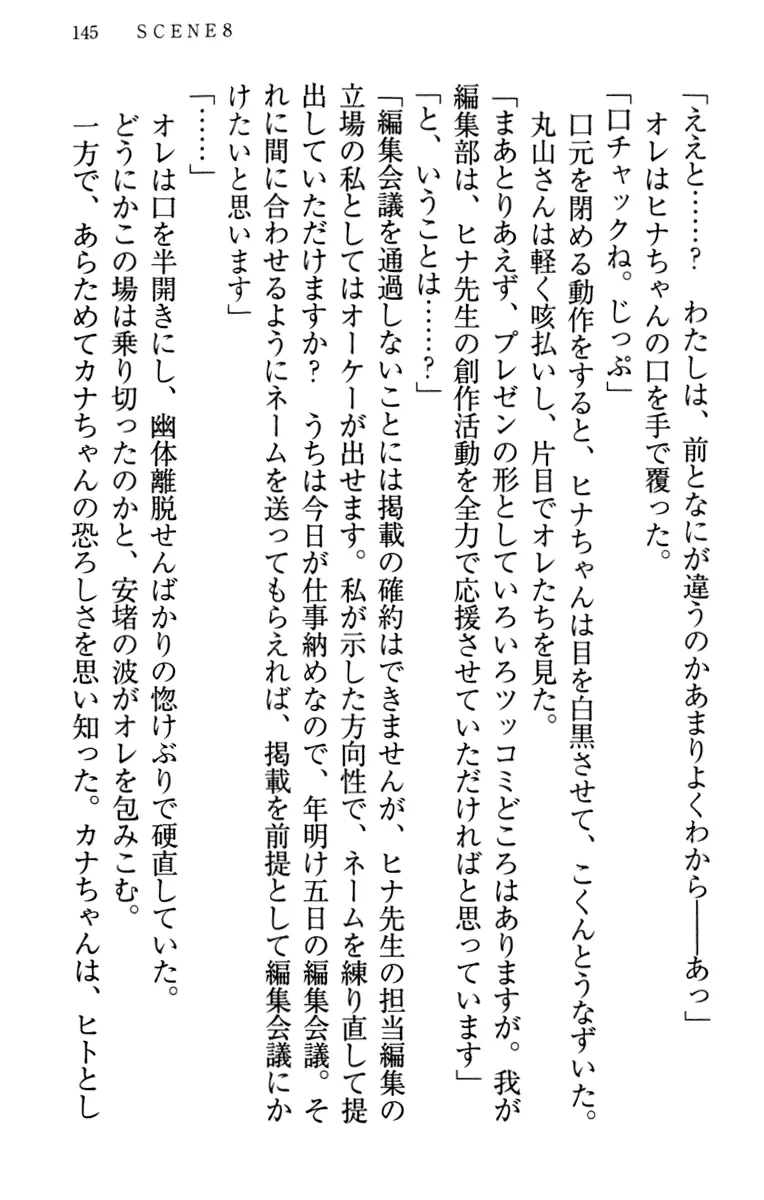 145　SCENE8
「ええと……？　わたしは、前となにが違うのかあまりよくわから――あっ」
オレはヒナちゃんの口を手で覆った。
「口チャックね。じっぷ」
口元を閉める動作をすると、ヒナちゃんは目を白黒させて、こくんとうなずいた。
丸山さんは軽く咳払いし、片目でオレたちを見た。
「まあとりあえず、プレゼンの形としていろいろツッコミどころはありますが。我が
編集部は、ヒナ先生の創作活動を全力で応援させていただければと思っています」
「と、いうことは……？」
「編集会議を通過しないことには掲載の確約はできませんが、ヒナ先生の担当編集の
立場の私としてはオーケーが出せます。私が示した方向性で、ネームを練り直して提
出していただけますか？　うちは今日が仕事納めなので、年明け五日の編集会議。そ
れに間に合わせるようにネームを送ってもらえれば、掲載を前提として編集会議にか
けたいと思います」
「……」
オレは口を半開きにし、幽体離脱せんばかりの惚けぶりで硬直していた。
どうにかこの場は乗り切ったのかと、安堵の波がオレを包みこむ。
一方で、あらためてカナちゃんの恐ろしさを思い知った。カナちゃんは、ヒトとし